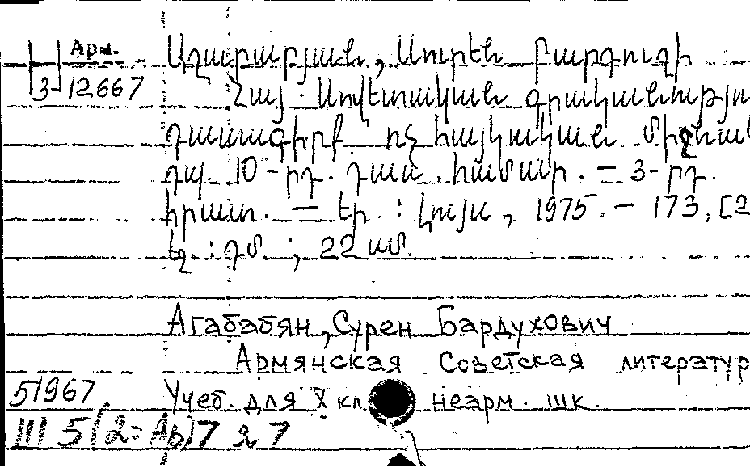 Арм.
3-12667
Աղաբաբյան, Սուրեն Բարդուղի
Հայ սովետական գրականությու
դասագիրք ոչ հայկական միջնակ
դպ. 10-րդ. դաս. համար. — 3-րդ
հրատ. — Եր. : Լույս, 1975. — 173, [2
էջ. : դմ. ; 22 սմ.
Агабабян, Сурен Бардухович
Армянская Советская литератур
51967
Учеб. для X кл. неарм. шк.
III 5(2=Ар)7 я 7